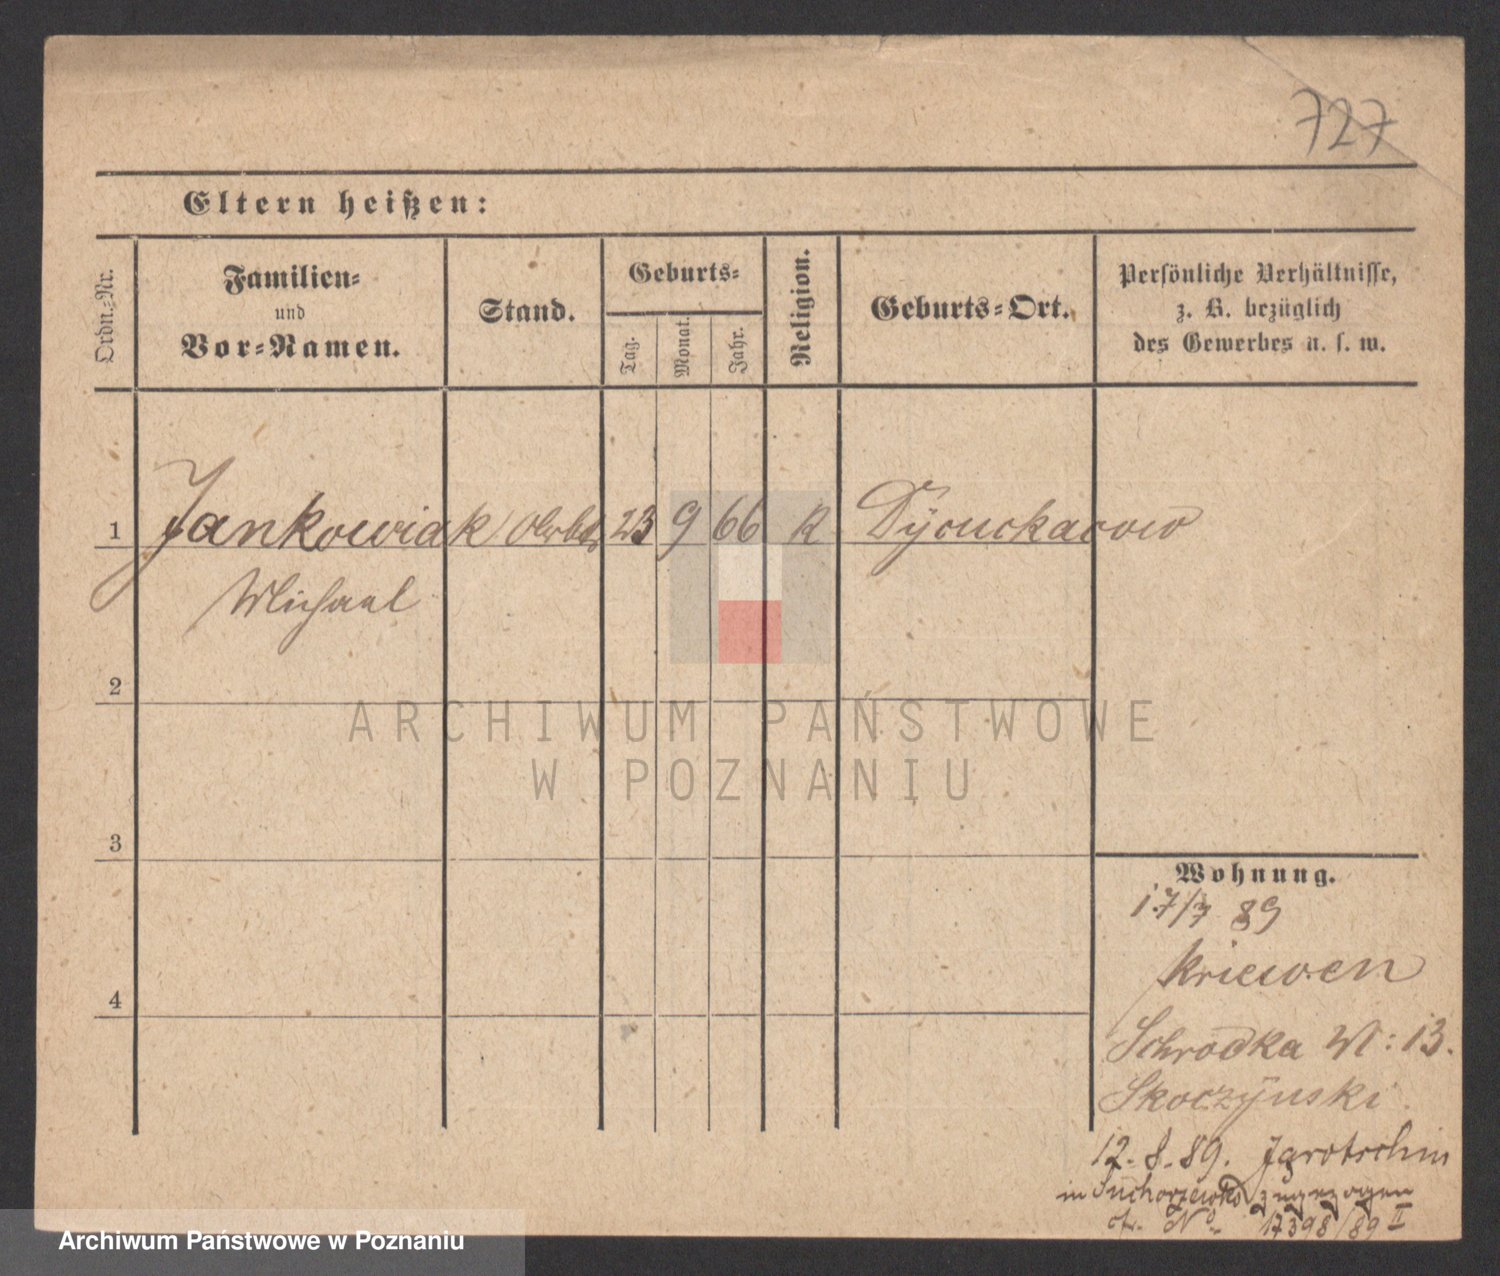 727
Eltern heißen:
Ordn.-Nr.
Familien-
und
Vor-Namen.
Stand.
Geburts-
Tag.
Monat.
Jahr.
Religion.
Geburts-Ort.
Persönliche Verhältnisse,
z. B. bezüglich
des Gewerbes u. s. w.
1 Jankowiak 23 9 66 K
Michael
2
ARCHIWUM PAŃSTWOWE
W POZNANIU
3
Wohnung.
17/7 89
Kriewen
4
Schrodka N: 13.
Skoczÿnski
12.8.89. Jarotschin
in zugezogen
cfr. No. 17398/89 II
Archiwum Państwowe w Poznaniu